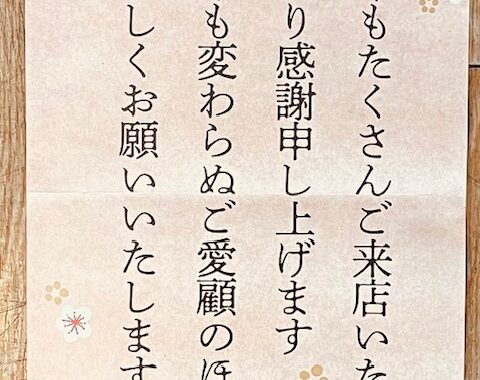 もたくさんご来店いた
り感謝申し上げます
も変わらぬご愛顧のほ
しくお願いいたします